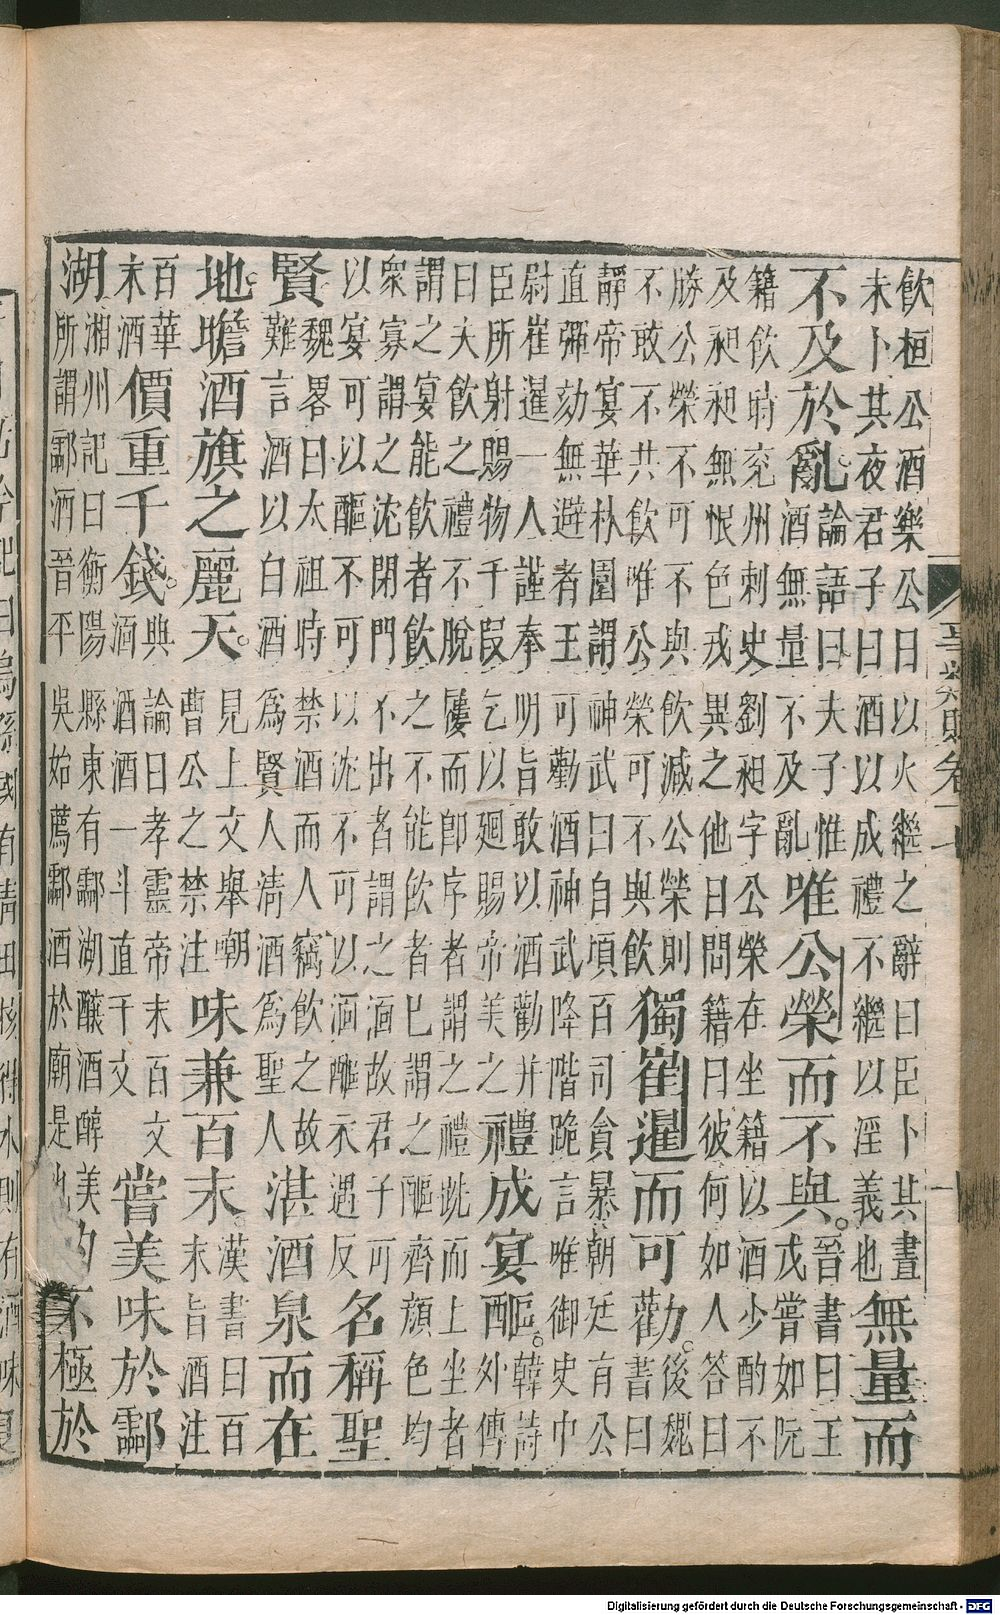 飲桓公酒樂公曰以火繼之辭曰臣卜其晝
未卜其夜君子曰酒以成禮不繼以淫義也
無量而
不及於亂。
論語曰夫子惟
酒無量不及亂
唯公榮而不與。
晉書曰王
戎嘗如阮
籍飲時兖州刺史劉昶字公榮在坐籍以酒少酌不
及昶昶無恨色戎異之他日問籍曰彼何如人答曰
勝公榮不可不與飲減公榮則
不敢不共飲唯公榮可不與飲
獨崔暹而可勸。
後魏
書曰
靜帝宴華林園謂神武曰自頃百司貪暴朝廷有公
直彈劾無避者王可勸酒神武降階跪言唯御史中
尉崔暹一人謹奉明旨敢以酒勸并
臣所射賜物千段乞以廻賜帝美之
禮成宴醧。
韓詩
外傳
曰夫飲之禮不脫屨而卽序者謂之禮跣而上坐者
謂之宴能飲者飲之不能飲者已謂之醧齊顏色均
衆寡謂之沈閉門不出者謂之湎故君子可
以宴可以醧不可以沈不可以湎醧衣遇反
名稱聖
賢
魏畧曰太祖時禁酒而人竊飲之故
難言酒以白酒為賢人淸酒為聖人
湛酒泉而在
地。瞻酒旗之麗天。
見上文舉嘲
曹公之禁注
味兼百末。
漢書曰百
末旨酒注
百華
末酒
價重千錢。
與論曰孝靈帝末百文
湎酒酒一斗直千文
嘗美味於酃
湖
湘州記曰衡陽縣東有酃湖釀酒醉美
所謂酃酒晉平吳始薦酃酒於廟是也
不極於
記曰烏孫國有青田核得水則有酒味
Digitalisierung gefördert durch die Deutsche Forschungsgemeinschaft - DFG